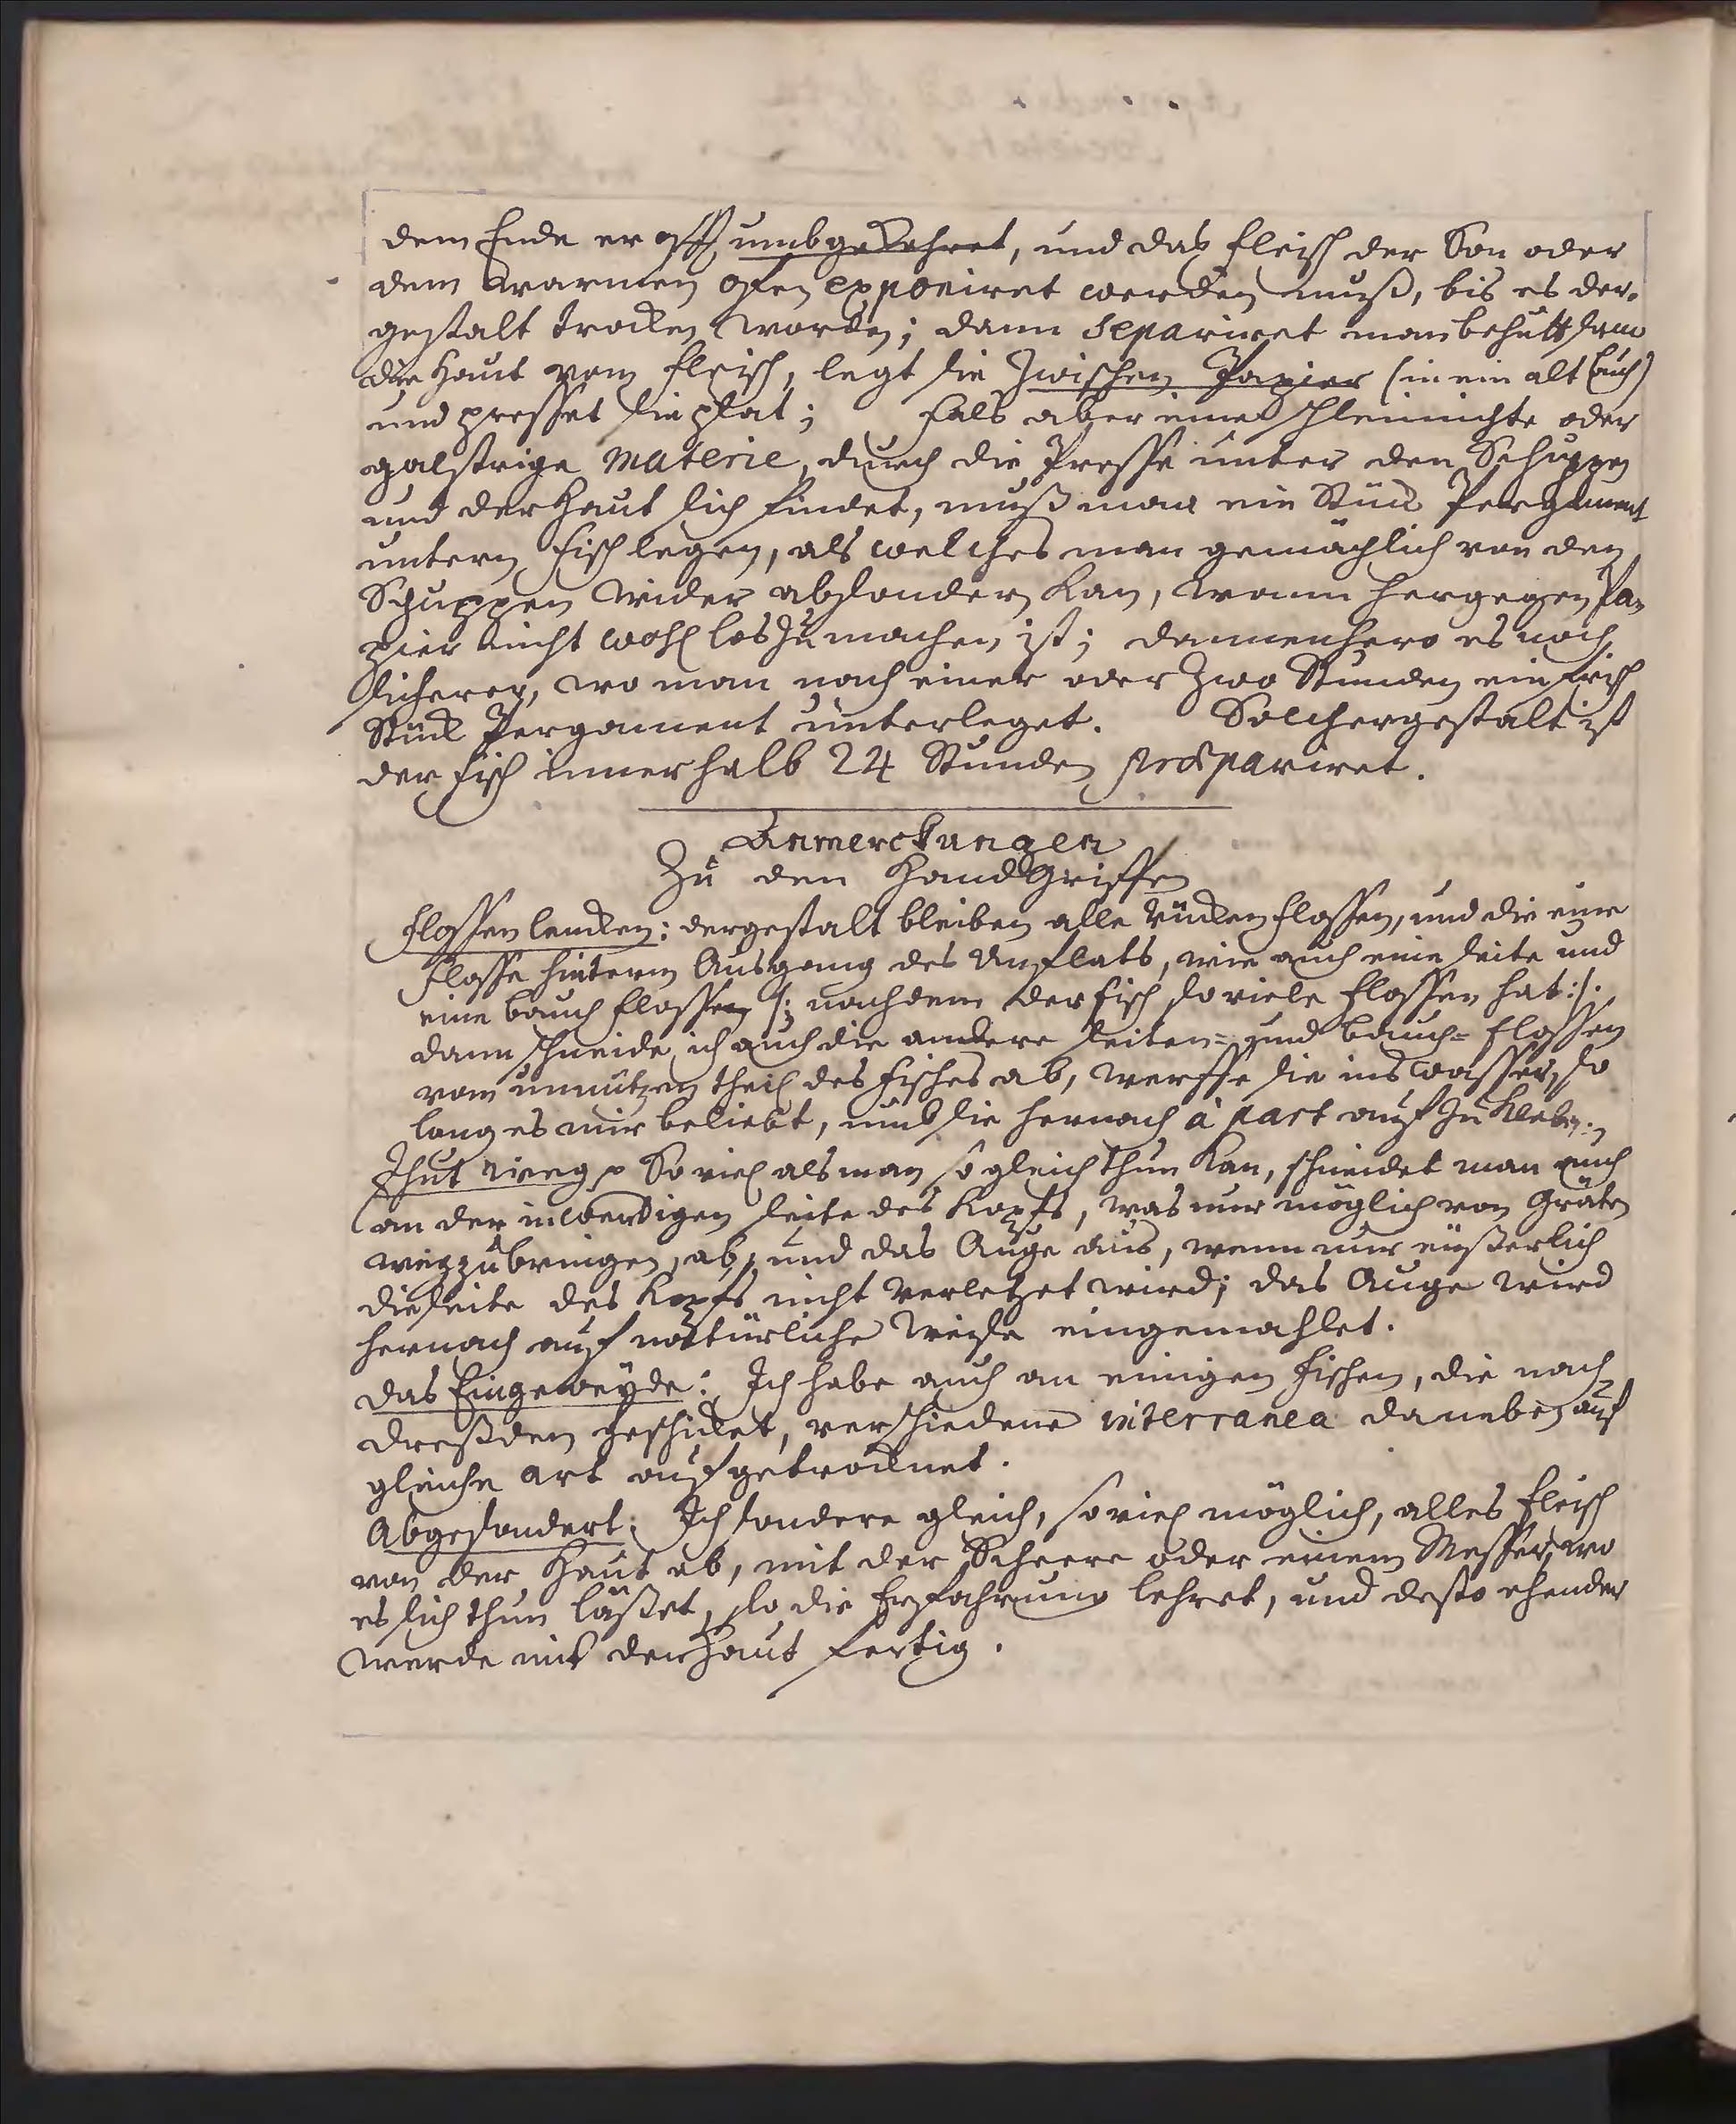 dem Ende er offt umbgekehret, und das fleisch der Son oder
dem warmen ofen exponiret werden muß, bis es der-
gestalt trocken worden; dann separiret man behuttsam
die Haut vom fleisch, legt sie Zwischen Papier (in ein alt buch)
und presset sie plat; Fals aber eine schleimichte oder
galstrige Materie, durch die Presse unter den Schuppen
und der Haut sich findet, muß man ein Stück Pergament
untern fisch legen, als welches man gemächlich von den
Schuppen wider absondern kan, wann hergegen Pa-
pier nicht wohl los zu machen ist; dannenhero es noch
sicherer, wo man nach einer oder zwo Stunden ein frisch
Stück Pergament unterleget. Solchergestalt ist
der fisch innerhalb 24 Stunden præpariret.
Anmerckungen
Zu den Handgriffen
Flossen lencken: dergestalt bleiben alle Rückenflossen, und die eine
Flosse hinterm Ausgang des Unflats, wie auch eine seite und
eine bauch flossen /: nachdem der fisch so viele flossen hat :/.
dann schneide ich auch die andere seiten= und bauch= flossen
vom unnützen theil des fisches ab, werffe sie ins wasser, so
lang es mir beliebt, umb sie hernach à part auf zu kleben.
Thut weg So viel als man so gleich thun kan, schneidet man auch
an der inwendigen seite des Kopfs, was nur möglich von Gräten
wegzubringen, ab, und das Auge aus, wenn nur eußerlich
die seite des Kopfs nicht verletzet wird; das Auge wird
hernach auf natürliche weise eingemahlet.
Das Eingeweyde: Ich habe auch an einigen fischen, die nach
Dreßden geschicket, verschiedene interranea daneben auf
gleiche art aufgetrocknet.
Abgesondert: Ich sondere gleich, so viel möglich, alles fleisch
von der Haut ab, mit der Scheere oder einem Messer, wo
es sich thun läßet, so die Erfahrung lehret, und desto ehender
werde mit der Haut fertig.